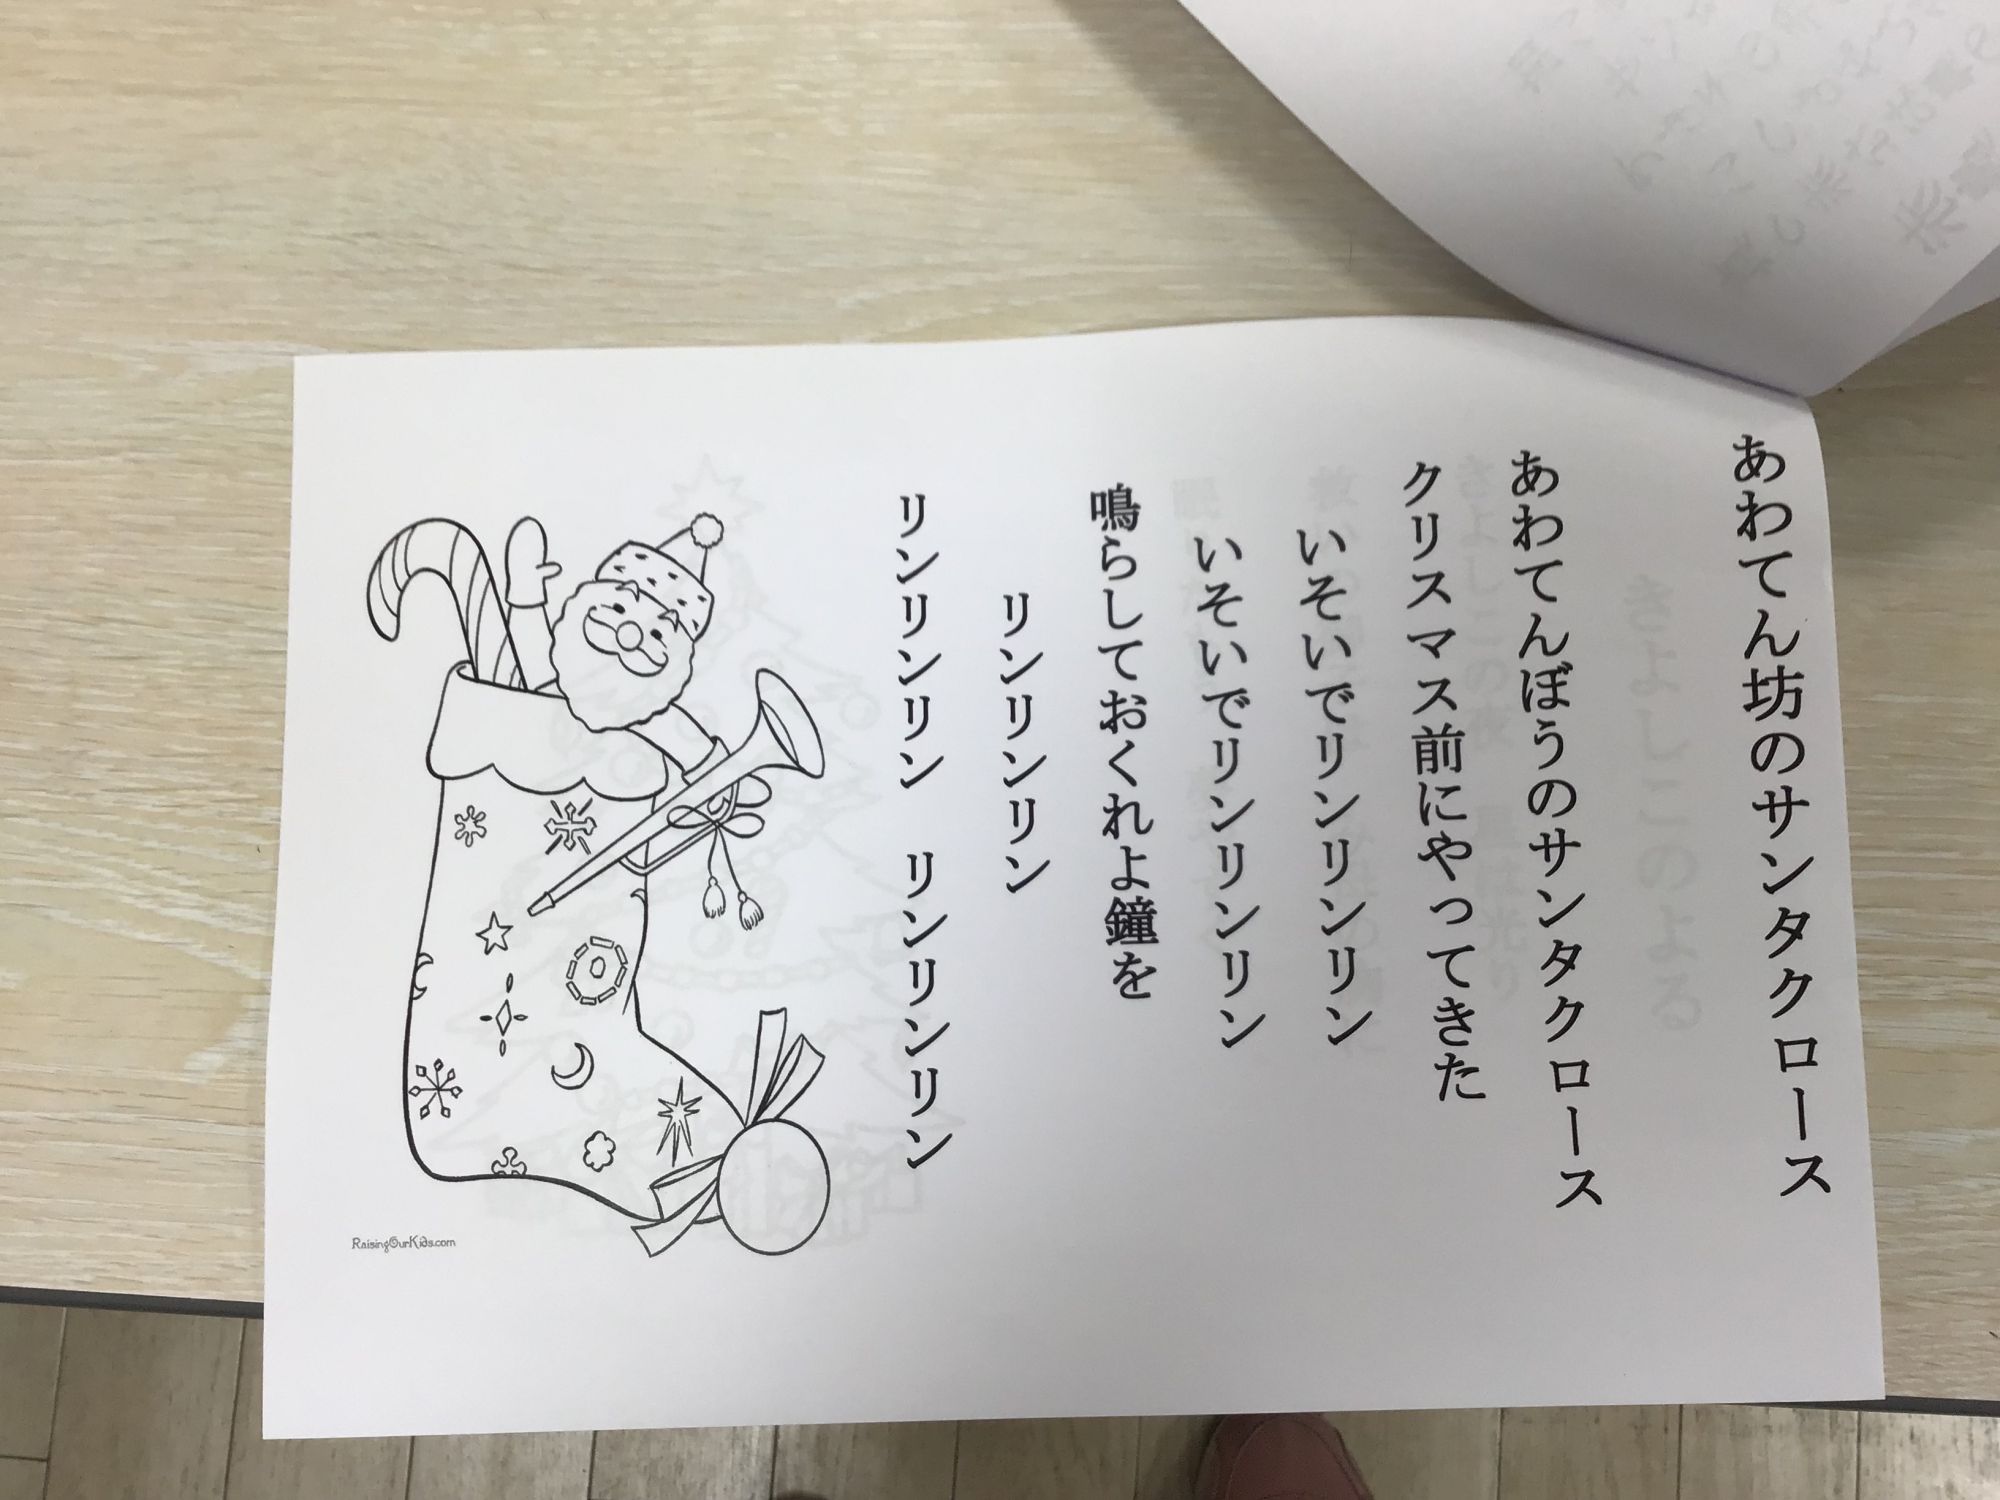 あわてん坊のサンタクロース
あわてんぼうのサンタクロース
クリスマス前にやってきた
いそいでリンリンリン
いそいでリンリンリン
鳴らしておくれよ鐘を
リンリンリン
リンリンリン　リンリンリン
RaisingOurKids.com
きよしこのよる
きよしこの夜　星は光り